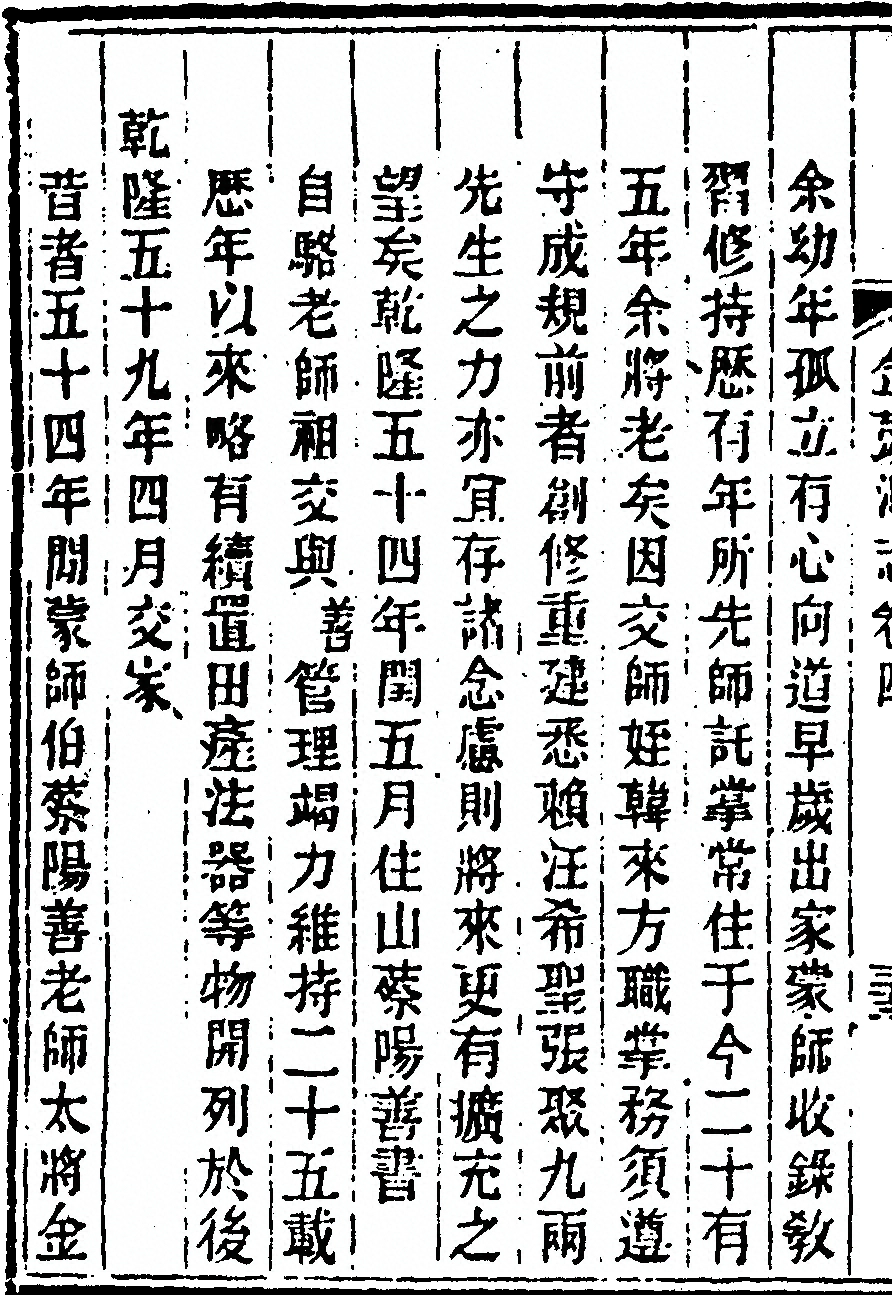 余幼年孤立有心向道早歲出家蒙師收錄教
習修持歷有年所先師託掌常住于今二十有
五年余將老矣因交師姪韓來方職掌務須遵
守成規前者創修重建悉賴汪希聖張聚九兩
先生之力亦宜存諸念慮則將來更有擴充之
望矣乾隆五十四年閏五月住山蔡陽善書
自駱老師祖交與善管理竭力維持二十五載
歷年以來略有續置田產法器等物開列於後
乾隆五十九年四月交家
昔者五十四年間蒙師伯蔡陽善老師太將金